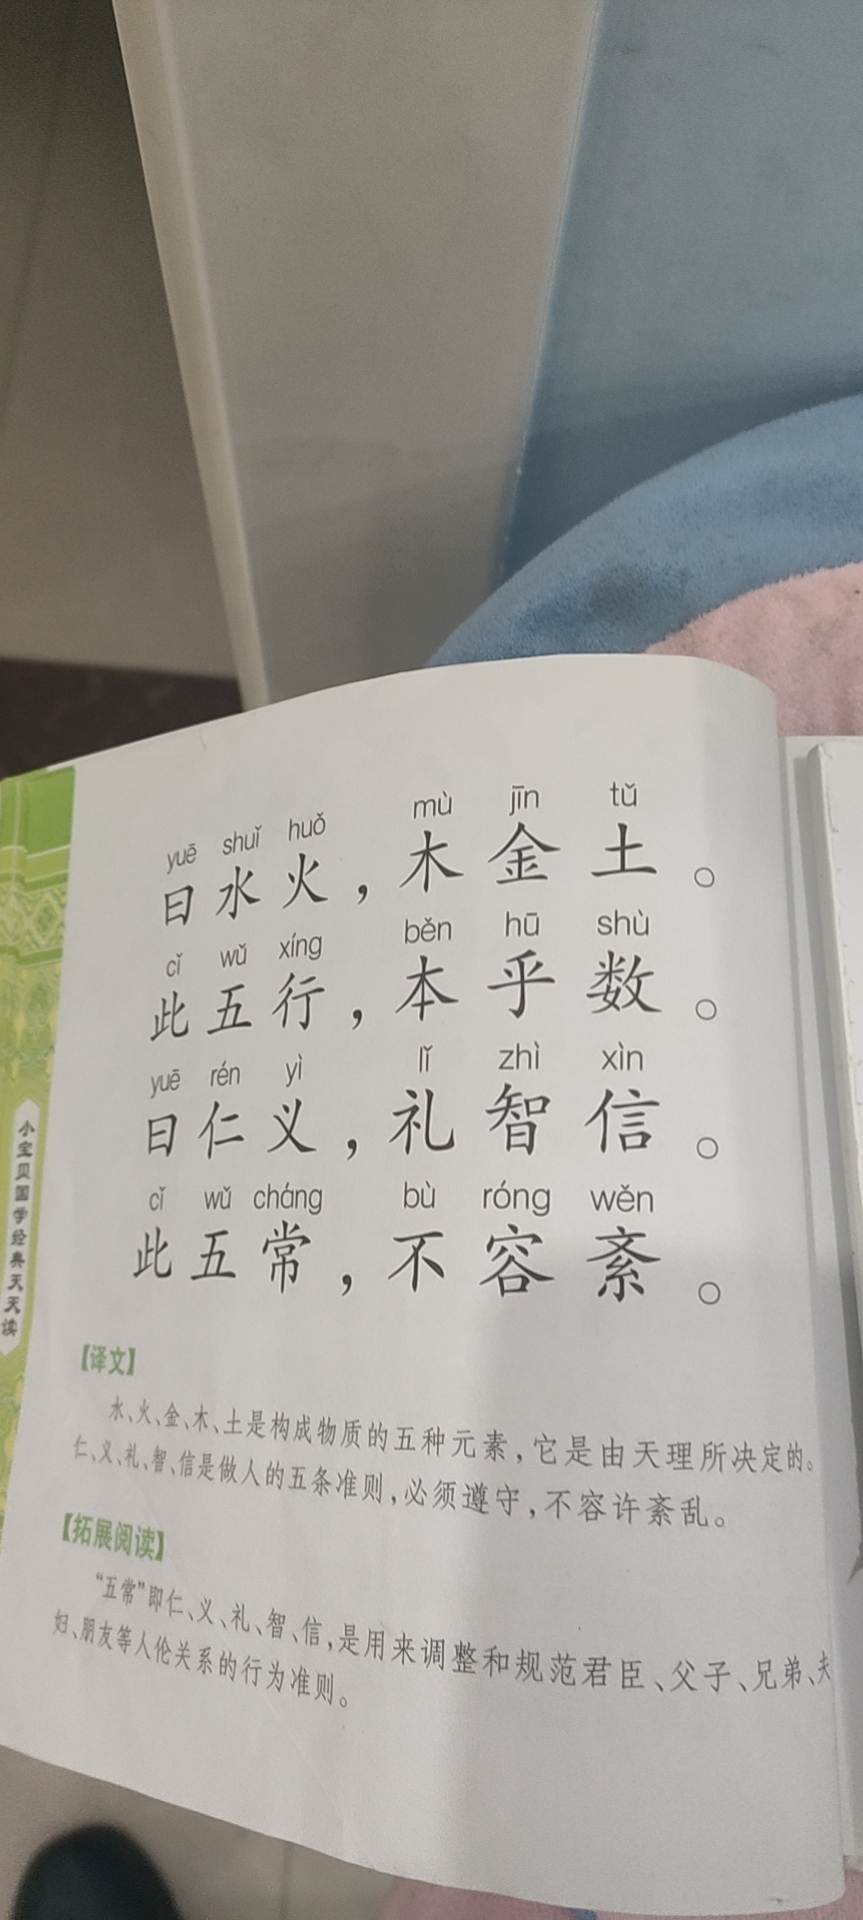 yuē shuǐ huǒ mù jīn tǔ
曰水火，木金土。
cǐ wǔ xíng běn hū shù
此五行，本乎数。
yuē rén yì lǐ zhì xìn
曰仁义，礼智信。
cǐ wǔ cháng bù róng wěn
此五常，不容紊。
小宝贝国学经典天天读
【译文】
水、火、金、木、土是构成物质的五种元素，它是由天理所决定的。
仁、义、礼、智、信是做人的五条准则，必须遵守，不容许紊乱。
【拓展阅读】
“五常”即仁、义、礼、智、信，是用来调整和规范君臣、父子、兄弟、夫
妇、朋友等人伦关系的行为准则。